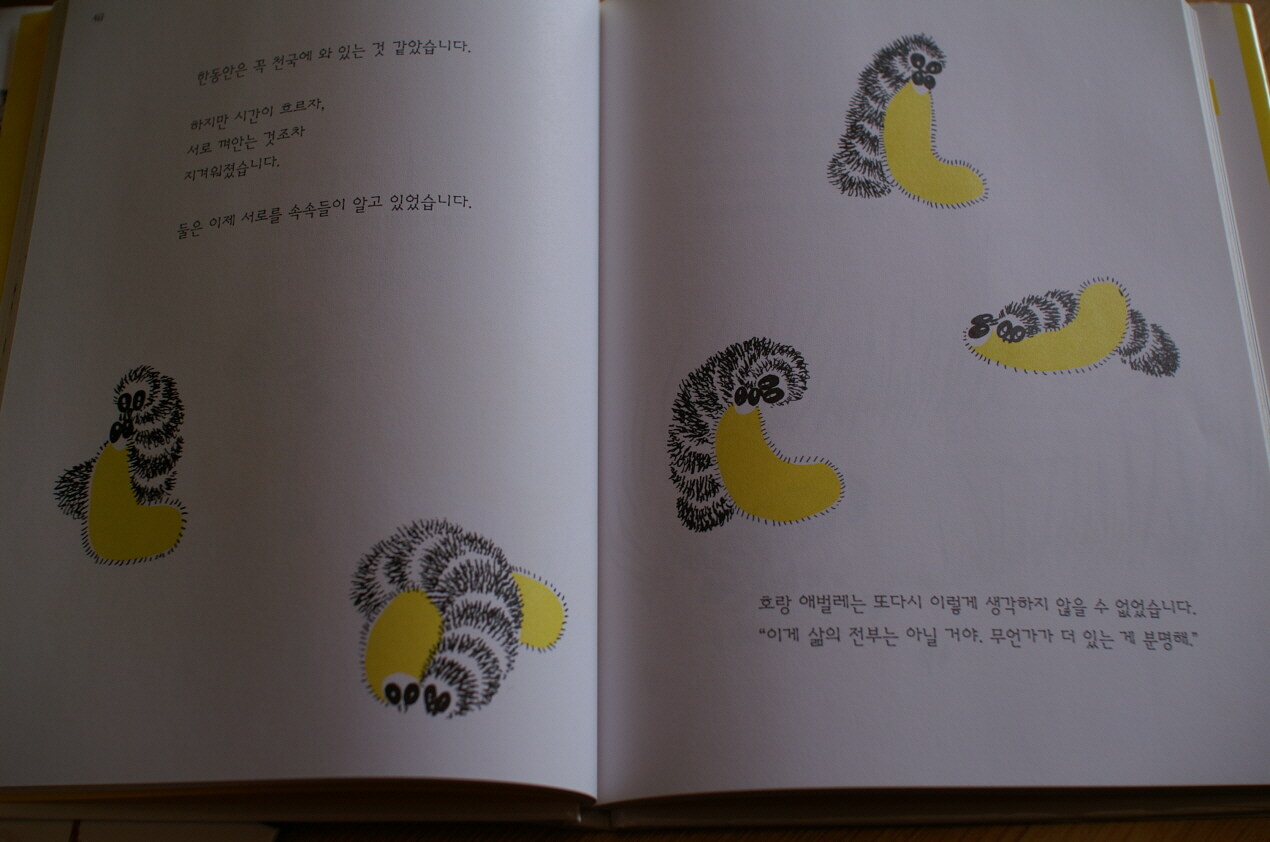 한동안은 꼭 천국에 와 있는 것 같았습니다.
하지만 시간이 흐르자,
서로 껴안는 것조차
지겨워졌습니다.
둘은 이제 서로를 속속들이 알고 있었습니다.
호랑 애벌레는 또다시 이렇게 생각하지 않을 수 없었습니다.
“이게 삶의 전부는 아닐 거야. 무언가가 더 있는 게 분명해.”